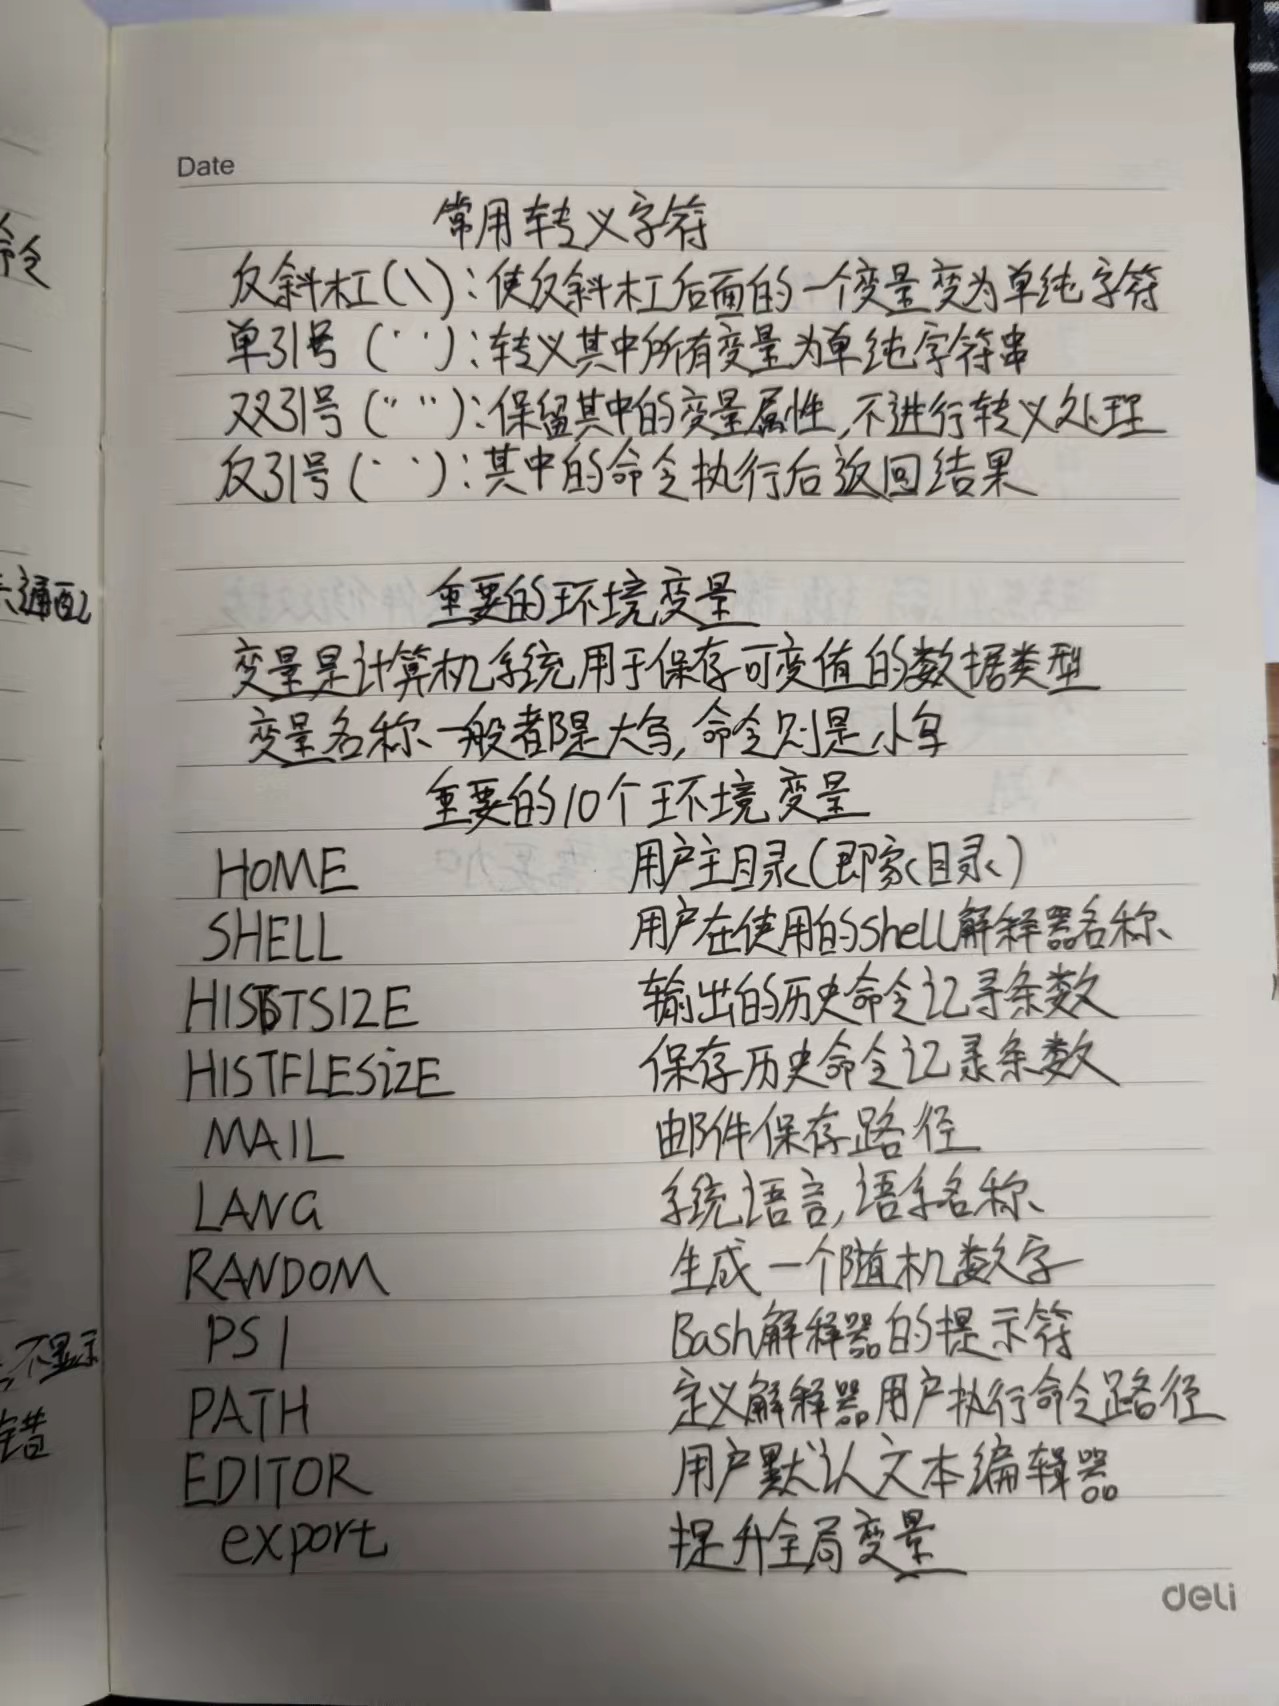 Date
常用转义字符
反斜杠(\):使反斜杠后面的一个变量变为单纯字符
单引号(' '):转义其中所有变量为单纯字符串
双引号(" "):保留其中的变量属性,不进行转义处理
反引号(` `):其中的命令执行后返回结果
重要的环境变量
变量是计算机系统用于保存可变值的数据类型
变量名称一般都是大写,命令则是小写
重要的10个环境变量
HOME 用户主目录(即家目录)
SHELL 用户在使用的shell解释器名称
HISTSIZE 输出的历史命令记录条数
HISTFLESiZE 保存历史命令记录条数
MAIL 邮件保存路径
LANG 系统语言,语系名称
RANDOM 生成一个随机数字
PS1 Bash解释器的提示符
PATH 定义解释器用户执行命令路径
EDITOR 用户默认文本编辑器
export 提升全局变量
deli
命令
通配
不显示
错